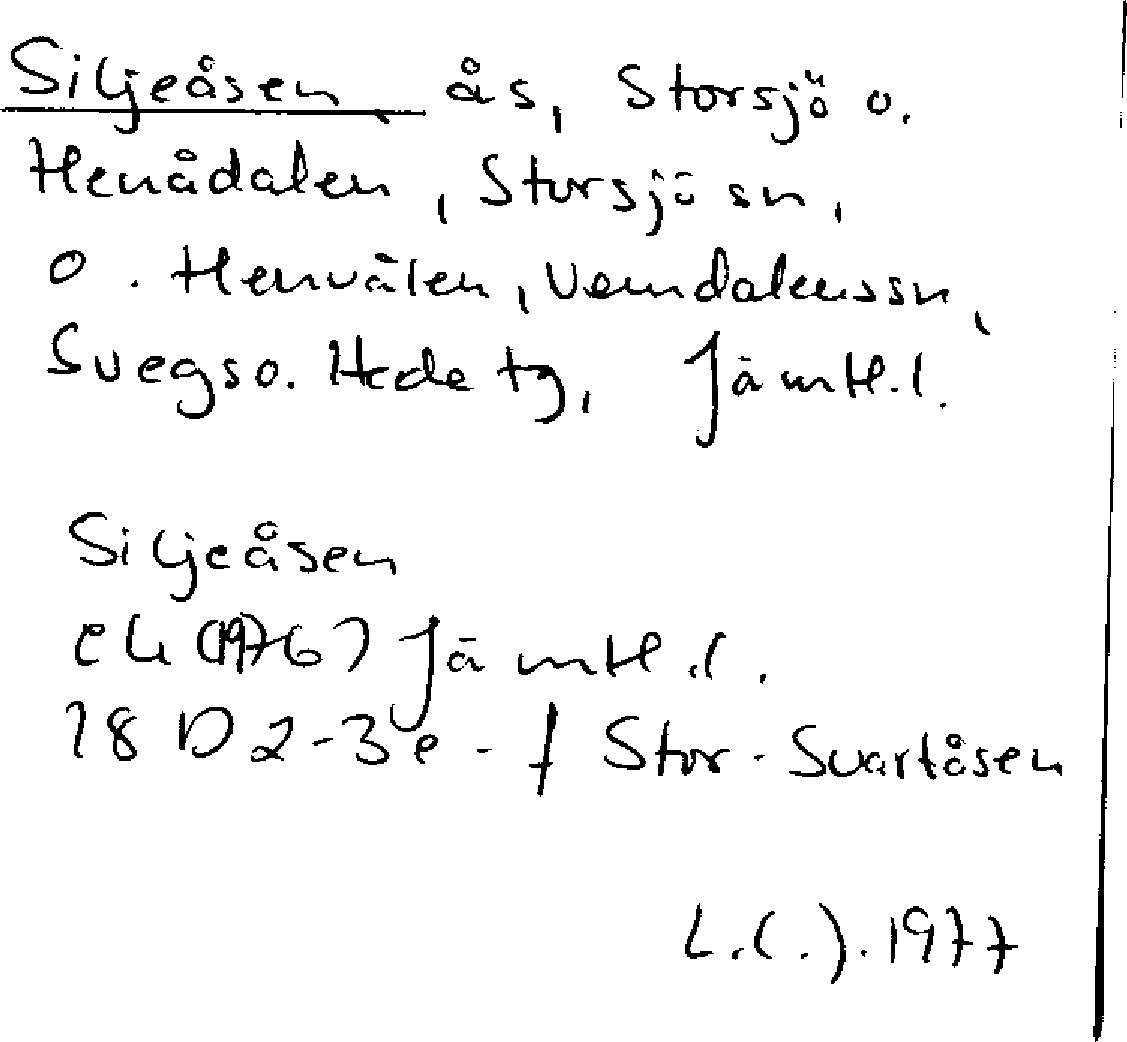 Siljeåsen ås, Storsjö o.
Henådalen, Storsjö sn,
o. Henvålen, Vemdalenssn,
Svegs o. Hede tg, Jämtl.l.
Siljeåsen
ek (1976) Jämtl.l.
18 D 2-3 e-f Stor-Svartåsen
L.(.). 1977